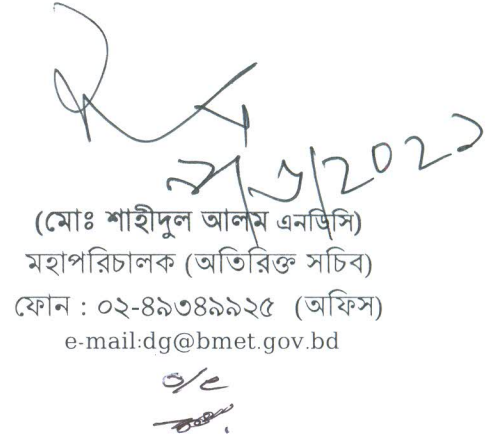 (মোঃ শাহীদুল আলম এনডিসি)
মহাপরিচালক (অতিরিক্ত সচিব)
ফোন : ০২-৪৯৩৪৯৯২৫ (অফিস)
e-mail:dg@bmet.gov.bd
o/c